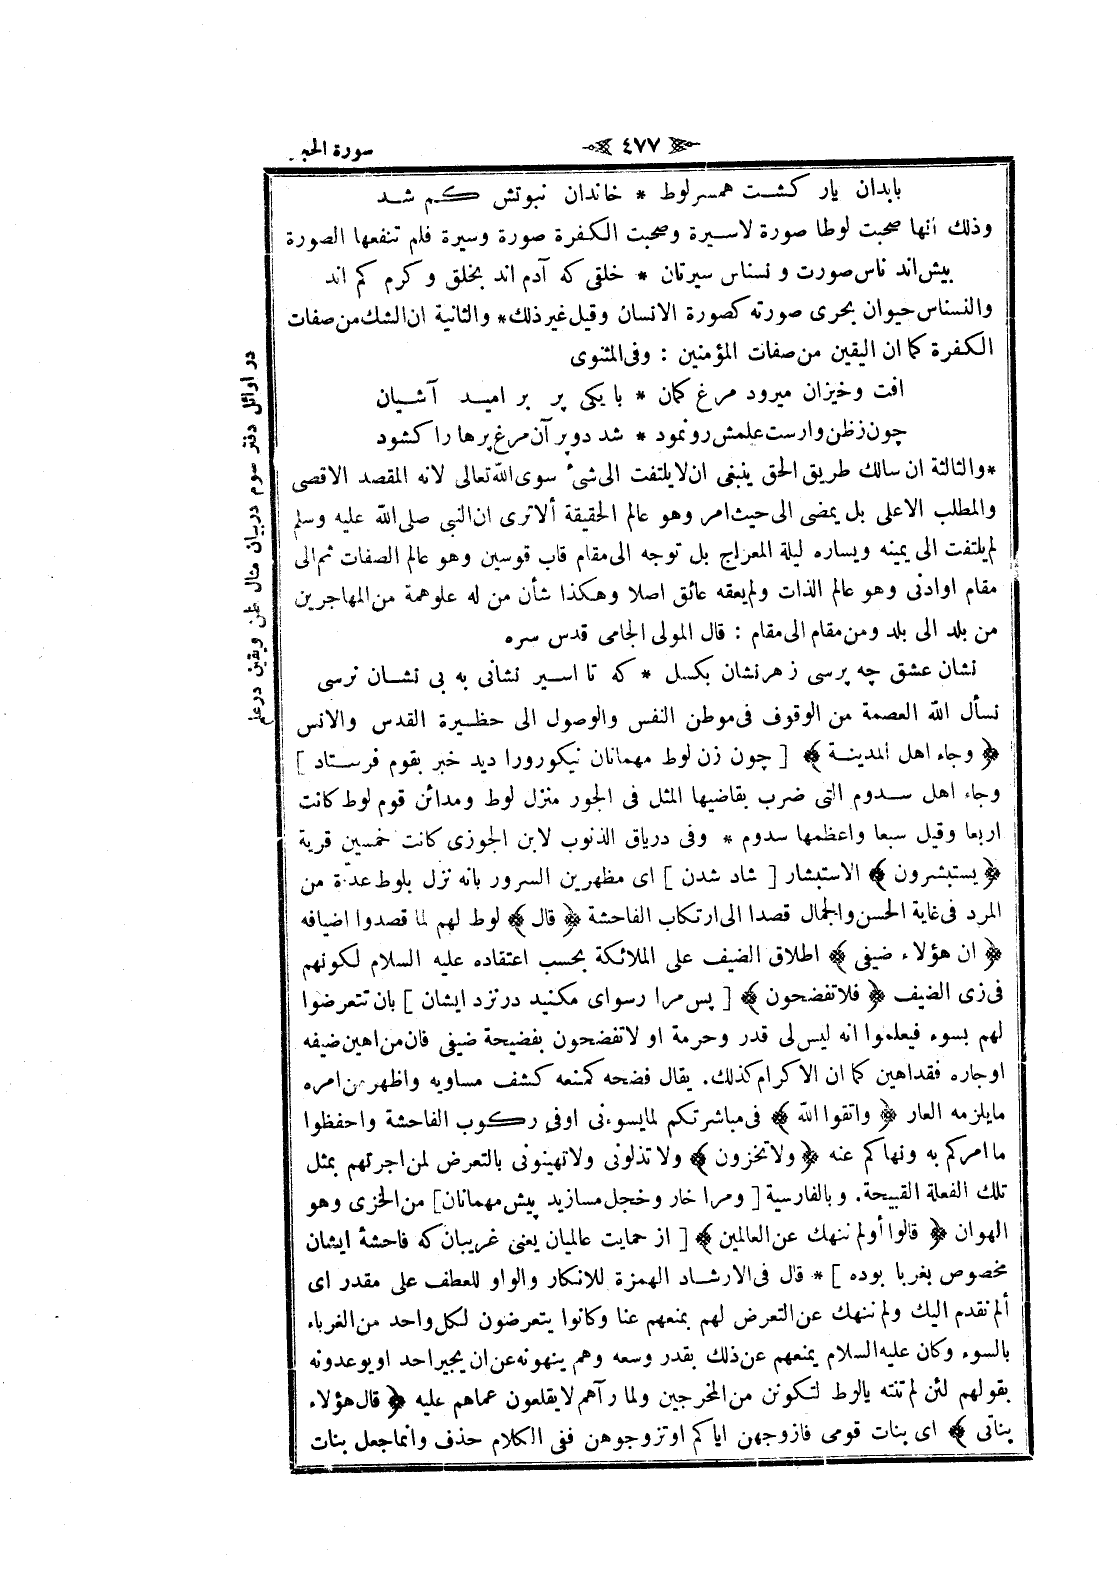 سورة الحجر
٤٧٧
بابدان يار كشت همسر لوط * خاندان نبوتش كم شد
وذلك أنها صحبت لوطا صورة لاسيرة وصحبت الكفرة صورة وسيرة فلم تنفعها الصورة
بيش اند ناس صورت و نسناس سيرتان * خلقى كه آدم اند بخلق و كرم كم اند
والنسناس حيوان بحرى صورته كصورة الانسان وقيل غير ذلك * والثانية ان الشك من صفات
الكفرة كما ان اليقين من صفات المؤمنين : وفى المثنوى
افت وخيزان ميرود مرغ كمان * با يكى پر بر اميد آشيان
چون زظن وارست علمش رو نمود * شد دو پر آن مرغ پرها را كشود
* والثالثة ان سالك طريق الحق ينبغى ان لا يلتفت الى شئ سوى الله تعالى لانه المقصد الاقصى
والمطلب الاعلى بل يمضى الى حيث امر وهو عالم الحقيقة ألا ترى ان النبى صلى الله عليه وسلم
لم يلتفت الى يمينه ويساره ليلة المعراج بل توجه الى مقام قاب قوسين وهو عالم الصفات ثم الى
مقام او ادنى وهو عالم الذات ولم يعقه عائق اصلا وهكذا شأن من له علو همة من المهاجرين
من بلد الى بلد ومن مقام الى مقام : قال المولى الجامى قدس سره
نشان عشق چه پرسى ز هر نشان بكسل * كه تا اسير نشانى به بى نشان نرسى
نسأل الله العصمة من الوقوف فى موطن النفس والوصول الى حظيرة القدس والانس
﴿ وجاء اهل المدينة ﴾ [ چون زن لوط مهمانان نيكورورا ديد خبر بقوم فرستاد ]
وجاء اهل سدوم التى ضرب بقاضيها المثل فى الجور منزل لوط ومدائن قوم لوط كانت
اربعا وقيل سبعا واعظمها سدوم * وفى درياق الذنوب لابن الجوزى كانت خمسين قرية
﴿ يستبشرون ﴾ الاستبشار [ شاد شدن ] اى مظهرين السرور بانه نزل بلوط عدة من
المرد فى غاية الحسن والجمال قصدا الى ارتكاب الفاحشة ﴿ قال ﴾ لوط لهم لما قصدوا اضيافه
﴿ ان هؤلاء ضيفى ﴾ اطلاق الضيف على الملائكة بحسب اعتقاده عليه السلام لكونهم
فى زى الضيف ﴿ فلا تفضحون ﴾ [ پس مرا رسواى مكنيد در نزد ايشان ] بان تتعرضوا
لهم بسوء فيعلموا انه ليس لى قدر وحرمة او لا تفضحون بفضيحة ضيفى فان من اهين ضيفه
او جاره فقد اهين كما ان الاكرام كذلك. يقال فضحه كمنعه كشف مساويه واظهر من امره
ما يلزمه العار ﴿ واتقوا الله ﴾ فى مباشرتكم لما يسوءنى او فى ركوب الفاحشة واحفظوا
ما امركم به ونهاكم عنه ﴿ ولا تخزون ﴾ ولا تذلونى ولا تهينونى بالتعرض لمن اجرتهم بمثل
تلك الفعلة القبيحة. وبالفارسية [ ومرا خار وخجل مسازيد پيش مهمانان ] من الخزى وهو
الهوان ﴿ قالوا أولم ننهك عن العالمين ﴾ [ از حمايت عالميان يعنى غريبان كه فاحشۀ ايشان
مخصوص بغربا بوده ] * قال فى الارشاد الهمزة للانكار والواو للعطف على مقدر اى
ألم نقدم اليك ولم ننهك عن التعرض لهم بمنعهم عنا وكانوا يتعرضون لكل واحد من الغرباء
بالسوء وكان عليه السلام يمنعهم عن ذلك بقدر وسعه وهم ينهونه عن ان يجير احد او يوعدونه
بقولهم لئن لم تنته يالوط لتكونن من المخرجين ولما رآهم لا يقلعون عماهم عليه ﴿ قال هؤلاء
بناتى ﴾ اى بنات قومى فازوجهن اياكم او تزوجوهن ففى الكلام حذف وانما جعل بنات
در اوائل دفتر سوم دربيان مثال ظن ويقين در علم